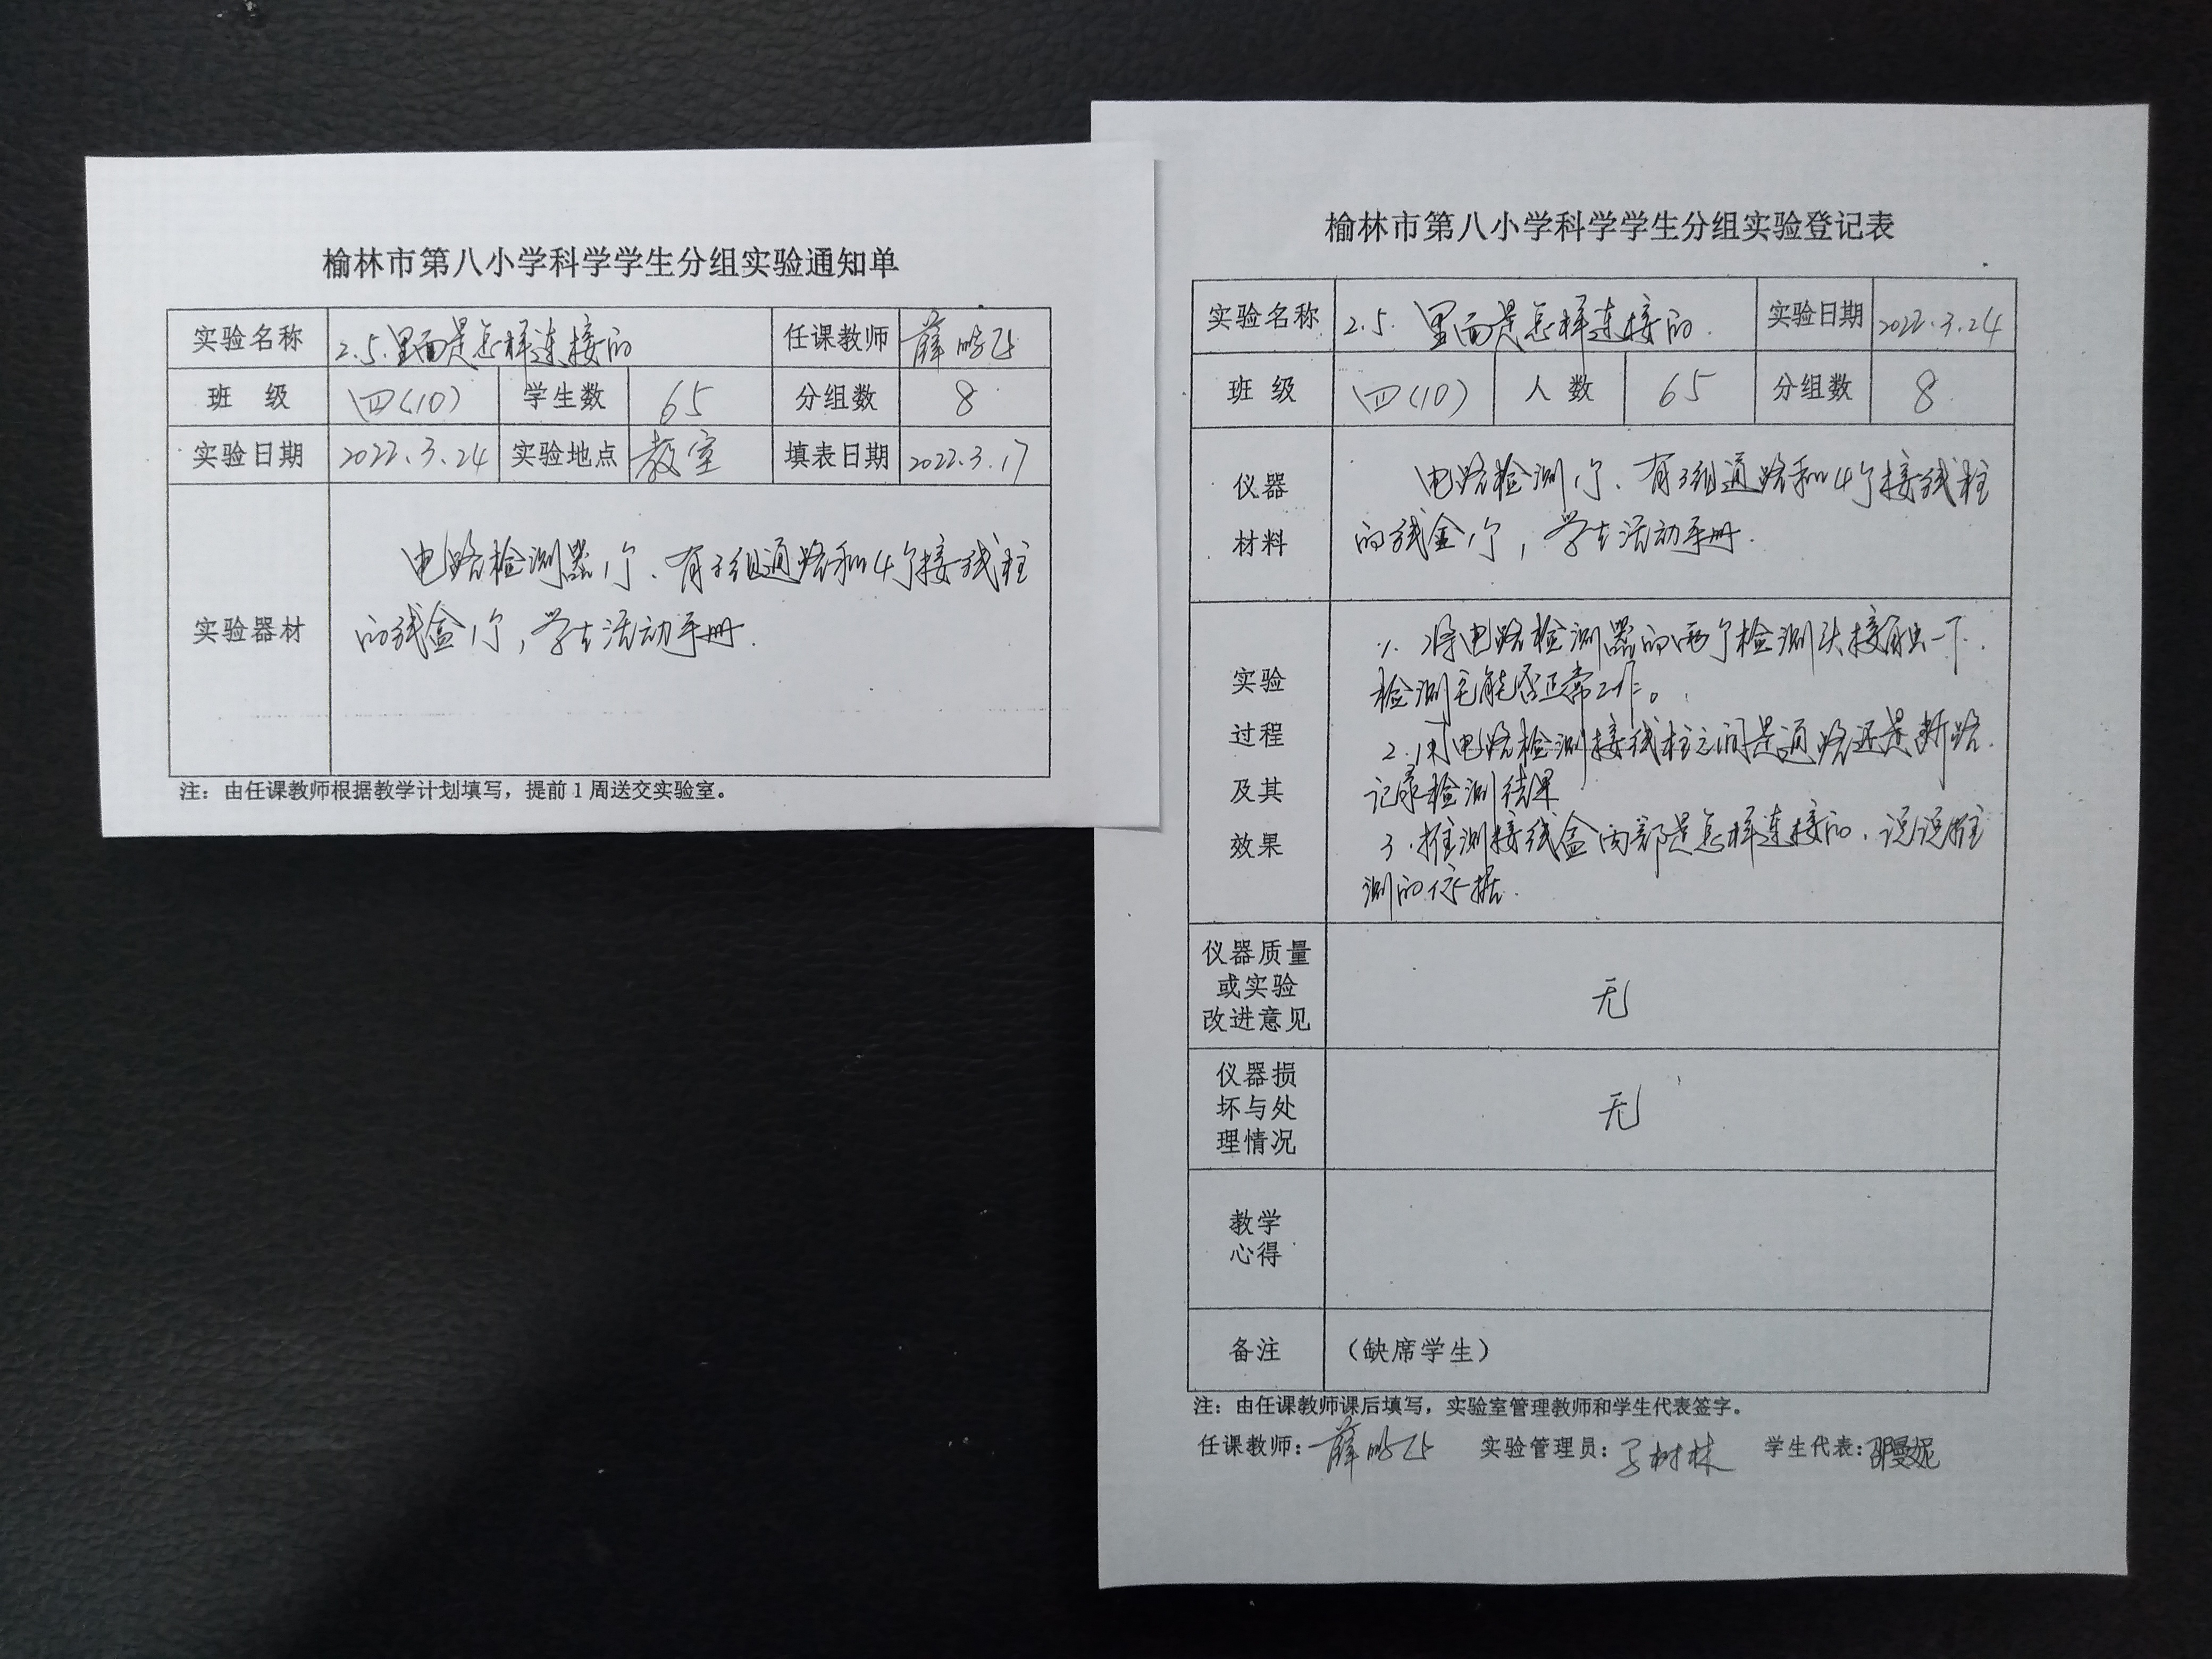 榆林市第八小学科学学生分组实验通知单
实验名称 2.5.里面是怎样连接的 任课教师 薛鹏飞
班 级 四(10) 学生数 65 分组数 8
实验日期 2022.3.24 实验地点 教室 填表日期 2022.3.17
实验器材
电路检测器1个、有3组通路和4个接线柱
的线盒1个,学生活动手册.
注：由任课教师根据教学计划填写，提前1周送交实验室。
榆林市第八小学科学学生分组实验登记表
实验名称 2.5.里面是怎样连接的. 实验日期 2022.3.24
班 级 四(10) 人 数 65 分组数 8
仪器
材料
电路检测1个、有3组通路和4个接线柱
的线盒1个,学生活动手册.
实验
过程
及其
效果
1.将电路检测器的两个检测头接触一下.
检测它能否正常工作。
2.用电路检测接线柱之间是通路还是断路.
记录检测结果
3.推测接线盒内部是怎样连接的.说说推
测的依据.
仪器质量
或实验
改进意见
无
仪器损
坏与处
理情况
无
教学
心得
备注 （缺席学生）
注：由任课教师课后填写，实验室管理教师和学生代表签字。
任课教师：薛鹏飞 实验管理员： 树林 学生代表： 曼妮